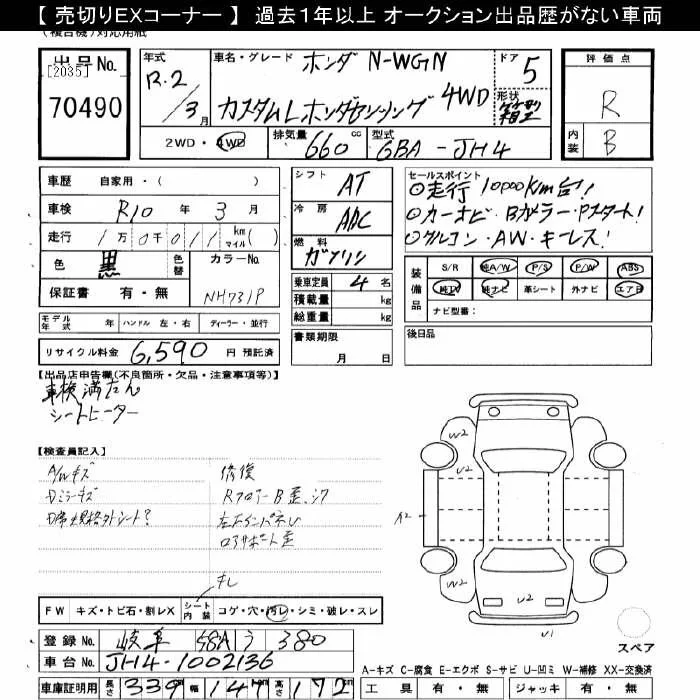 【 売切りEXコーナー 】 過去1年以上 オークション出品歴がない車両
(複合機)対応用紙
出品No.
[2035]
70490
年式
R.2
/3月
車名・グレード
ホンダ N-WGN
カスタムL ホンダセンシング 4WD
ドア
5
形状
評価点
R
内装
B
2WD・4WD
排気量
660 cc
型式
6BA-JH4
車歴 自家用・( )
車検 R10 年 3 月
走行 1万0千011 km マイル( )
色 黒 色替 カラーNo.
保証書 有・無 NH731P
シフト AT
冷房 AAC
燃料 ガソリン
乗車定員 4 名
積載量 kg
総重量 kg
セールスポイント
◎走行 10000km台!
◎カーナビ・Bカメラ・Pスタート!
◎クルコン・AW・キーレス!
装備品
S/R 純A/W P/S P/W ABS
純TV 純ナビ 革シート 外ナビ エアB
ナビ型番:
モデル年式 年 ハンドル 左・右 ディーラー・並行
リサイクル料金 6,590 円 預託済
書類期限
月 日
後日品
【出品店申告欄(不良箇所・欠品・注意事項等)】
車検満たん
シートヒーター
【検査員記入】
A/Wキズ
Dミラーキズ
修復
RフロアーB歪、シワ
左右インパネし
ロアサポート歪
キレ
W2
U2
A2
W2
W2
U2
U1
スペア
FW キズ・トビ石・割レX シート内装 コゲ・穴・汚レ・シミ・破レ・スレ
登録No. 岐阜 581 う 380
車台No. JH4-1002136
車庫証明用 長さ 339 幅 147 高さ 172
A-キズ C-腐食 E-エクボ S-サビ U-凹ミ W-補修 XX-交換済
工具 有・無 ジャッキ 有・無